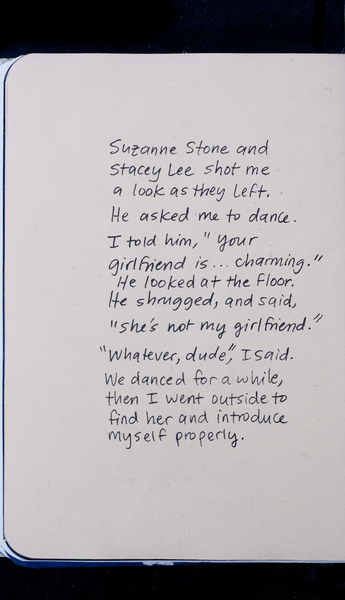 Suzanne Stone and
Stacey Lee shot me
a look as they left.
He asked me to dance.
I told him, "your
girlfriend is... charming."
He looked at the floor.
He shrugged, and said,
"she's not my girlfriend."
"Whatever, dude", I said.
We danced for a while,
then I went outside to
find her and introduce
myself properly.